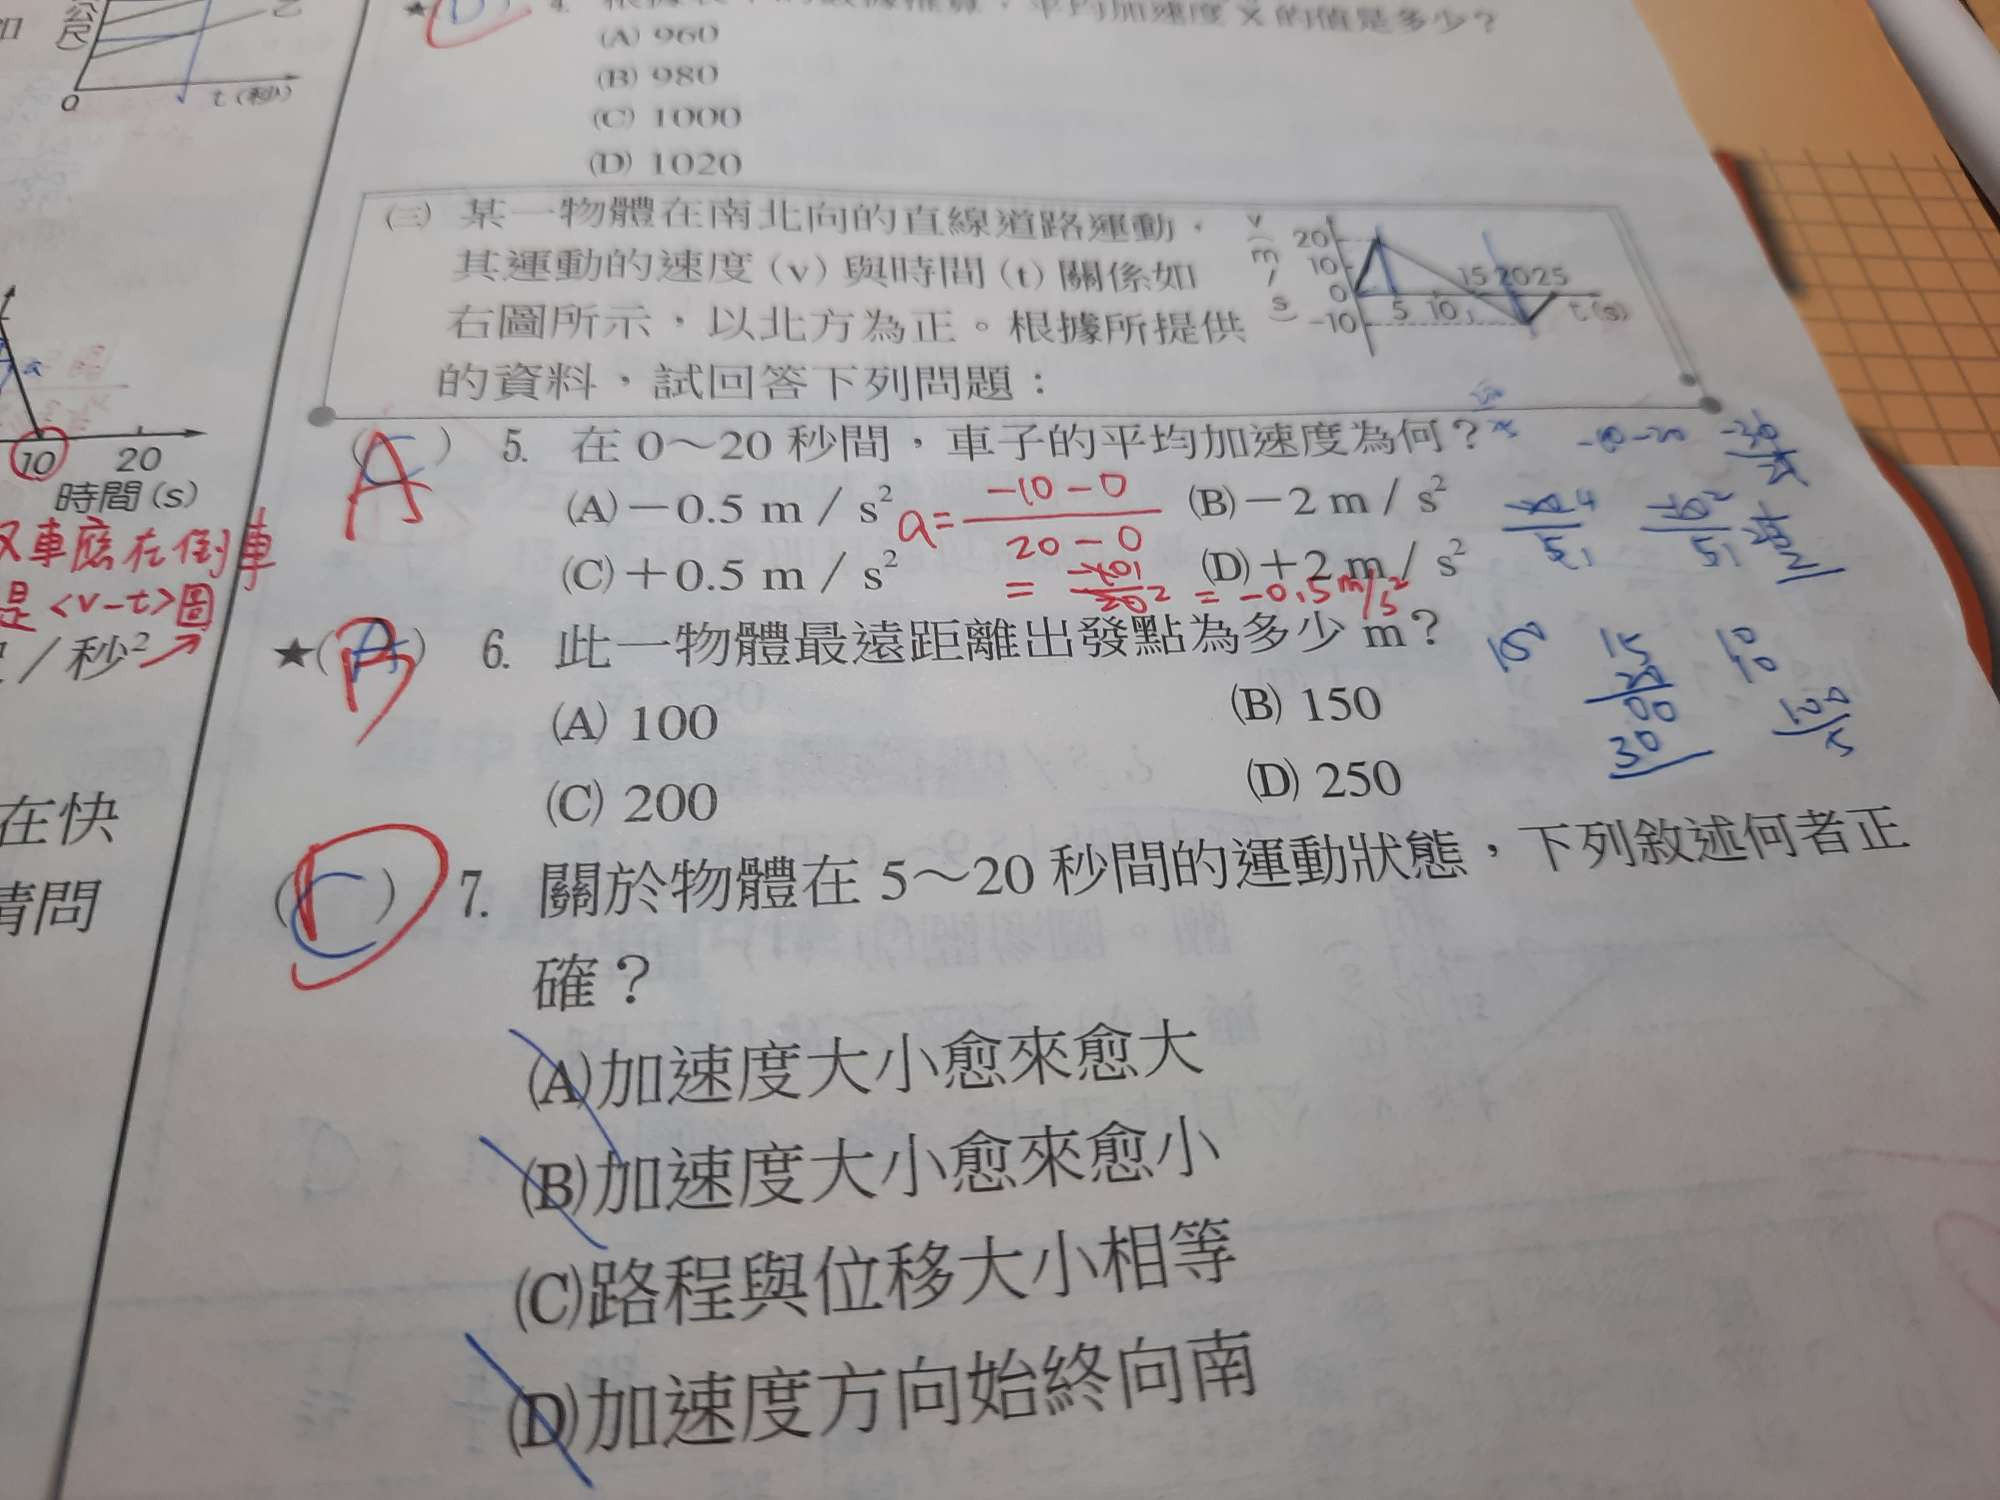 乙
公尺
0
t(秒)
4.
平均加速度 X 的值是多少？
(A) 960
(B) 980
(C) 1000
(D) 1020
(三) 某一物體在南北向的直線道路運動，
其運動的速度(v)與時間(t)關係如
右圖所示，以北方為正。根據所提供
的資料，試回答下列問題：
v(m/s)
20
10
0
-10
5 10 15 20 25
t(s)
(A) 5. 在 0～20 秒間，車子的平均加速度為何？
(A)－0.5 m／s² (B)－2 m／s²
(C)＋0.5 m／s² (D)＋2 m／s²
a= -10-0
20-0
= -0.5 m/s²
-10-20
★(B) 6. 此一物體最遠距離出發點為多少 m？
(A) 100 (B) 150
(C) 200 (D) 250
150
15
20
00
30
10
10
100
5
(C) 7. 關於物體在 5～20 秒間的運動狀態，下列敘述何者正
確？
(A)加速度大小愈來愈大
(B)加速度大小愈來愈小
(C)路程與位移大小相等
(D)加速度方向始終向南
10 20
時間(s)
車應在倒車
是<v-t>圖
／秒²
在快
請問